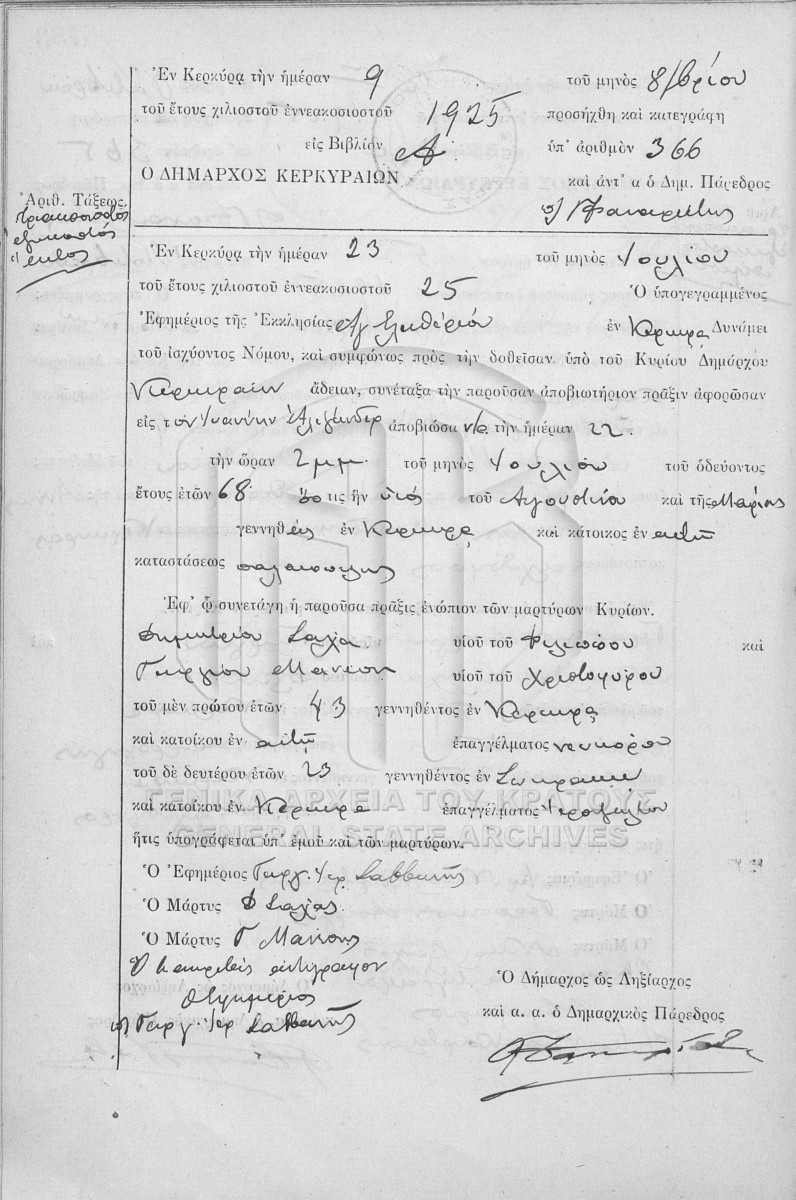 Ἐν Κερκύρᾳ τὴν ἡμέραν 9 τοῦ μηνὸς 8/βρίου
τοῦ ἔτους χιλιοστοῦ ἐννεακοσιοστοῦ 1925 προσήχθη καὶ κατεγράφη
εἰς Βιβλίον Α ὑπ' ἀριθμὸν 366
Ο ΔΗΜΑΡΧΟΣ ΚΕΡΚΥΡΑΙΩΝ καὶ ἀντ' α ὁ Δημ. Πάρεδρος
Ἀριθ. Τάξεως.
τριακοσιοστός
εξηκοστός
έκτος
Ἐν Κερκύρᾳ τὴν ἡμέραν 23 τοῦ μηνὸς Ιουλίου
τοῦ ἔτους χιλιοστοῦ ἐννεακοσιοστοῦ 25 Ὁ ὑπογεγραμμένος
Ἐφημέριος τῆς Ἐκκλησίας Αγ Ελευθερίου ἐν Κερκύρᾳ Δυνάμει
τοῦ ἰσχύοντος Νόμου, καὶ συμφώνως πρὸς τὴν δοθεῖσαν ὑπὸ τοῦ Κυρίου Δημάρχου
Κερκυραίων ἄδειαν, συνέταξα τὴν παροῦσαν ἀποβιωτήριον πρᾶξιν ἀφορῶσαν
εἰς τον Ιωαννην Αλεξάνδερ ἀποβιώσα τὴν ἡμέραν 22.
τὴν ὥραν 2 μμ. τοῦ μηνὸς Ιουλίου τοῦ ὁδεύοντος
ἔτους ἐτῶν 68 ὅστις ἦν υιός τοῦ Αυγουστίνου καὶ τῆς Μαρίας
γεννηθείς ἐν Κερκυρᾳ καὶ κάτοικος ἐν αυτῇ
καταστάσεως
Ἐφ' ᾧ συνετάγη ἡ παροῦσα πρᾶξις ἐνώπιον τῶν μαρτύρων Κυρίων.
Δημητρίου Σαλχα υἱοῦ τοῦ Φιλιππου καὶ
Γεωργίου Μανέση υἱοῦ τοῦ Χριστοφόρου
τοῦ μὲν πρώτου ἐτῶν 43 γεννηθέντος ἐν Κερκυρᾳ
καὶ κατοίκου ἐν αυτῇ ἐπαγγέλματος νεωκόρου
τοῦ δὲ δευτέρου ἐτῶν 23 γεννηθέντος ἐν Σωκρακη
καὶ κατοίκου ἐν Κερκυρᾳ ἐπαγγέλματος Ιεροψάλτου
ΓΕΝΙΚΑ ΑΡΧΕΙΑ ΤΟΥ ΚΡΑΤΟΥΣ
GENERAL STATE ARCHIVES
ἥτις ὑπογράφεται ὑπ' ἐμοῦ καὶ τῶν μαρτύρων.
Ὁ Ἐφημέριος Γεωργ. Ιερ Σαββανής
Ὁ Μάρτυς Δ Σαλχας
Ὁ Μάρτυς Γ Μανέσης
αντιγραφον
Ὁ Δήμαρχος ὡς Ληξίαρχος
Ο Εφημέριος
καὶ α. α. ὁ Δημαρχικὸς Πάρεδρος
Γεωργ. Ιερ Σαββανής